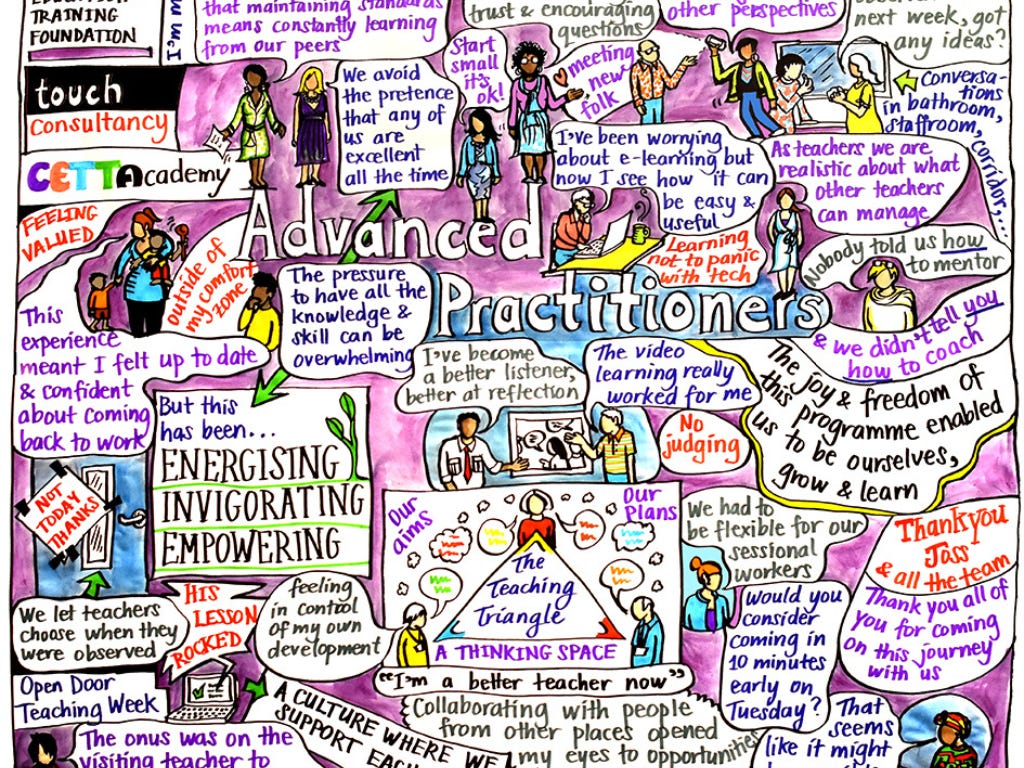 TRAINING
FOUNDATION
I'm
that maintaining standards
means constantly learning
from our peers
trust & encouraging
questions
other perspectives
next week, got
any ideas?
touch
Consultancy
CETTAcademy
We avoid
the pretence
that any of
us are
excellent
all the time
Start
small
it's
ok!
meeting
new
folk
Conversa-
tions
in bathroom,
staffroom,
corridor,...
I've been worrying
about e-learning but
now I see how it can
be easy &
useful
As teachers we are
realistic about what
other teachers
can manage
Learning
not to panic
with tech
Nobody told us how
to mentor
& we didn't tell you
how to coach
Advanced
Practitioners
FEELING
VALUED
outside of
my comfort
zone
The pressure
to have all the
knowledge &
skill can be
overwhelming
This
experience
meant I felt up to date
& confident
about coming
back to work
But this
has been...
ENERGISING
INVIGORATING
EMPOWERING
I've become
a better listener,
better at reflection
The video
learning really
worked for me
No
judging
The joy & freedom of
this programme enabled
us to be ourselves,
grow & learn
NOT
TODAY
THANKS
We let teachers
choose when they
were observed
HIS
LESSON
ROCKED
feeling
in control
of my own
development
Our
aims
Our
Plans
The
Teaching
Triangle
A THINKING SPACE
"I'm a better teacher now"
We had to
be flexible for our
sessional
workers
Thankyou
Joss
& all the team
Thank you all of
you for coming
on this journey
with us
Would you
consider
coming in
10 minutes
early on
Tuesday?
That
seems
like it might
Open Door
Teaching Week
The onus was on the
visiting teacher to
A CULTURE WHERE WE
SUPPORT
Collaborating with people
from other places opened
my eyes to opportunities